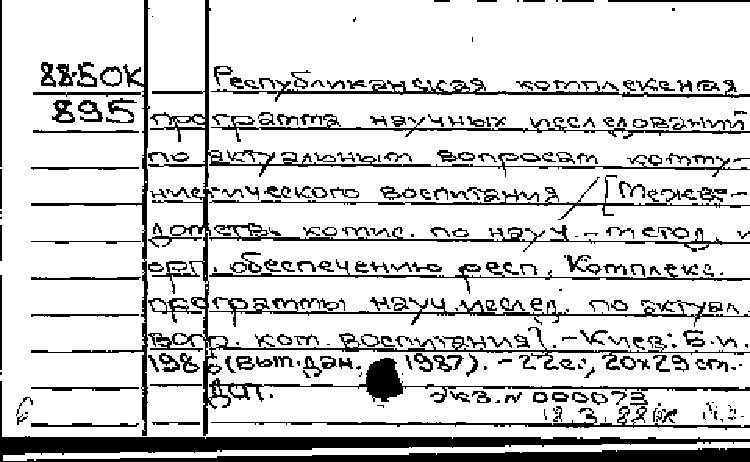 88-50К Республиканская комплексная
895 программа научных исследований
по актуальным вопросам комму-
нистического воспитания / [Межве-
домств. комис. по науч.-метод. и
орг. обеспечению респ. Комплекс.
программы науч. исслед. по актуал.
вопр. ком. воспитания]. - Киев: Б.и.
1986 (Вып.дан. 1987). - 22с.; 20x29 см. -
ДСП. Экз. N 000073
18.3.88